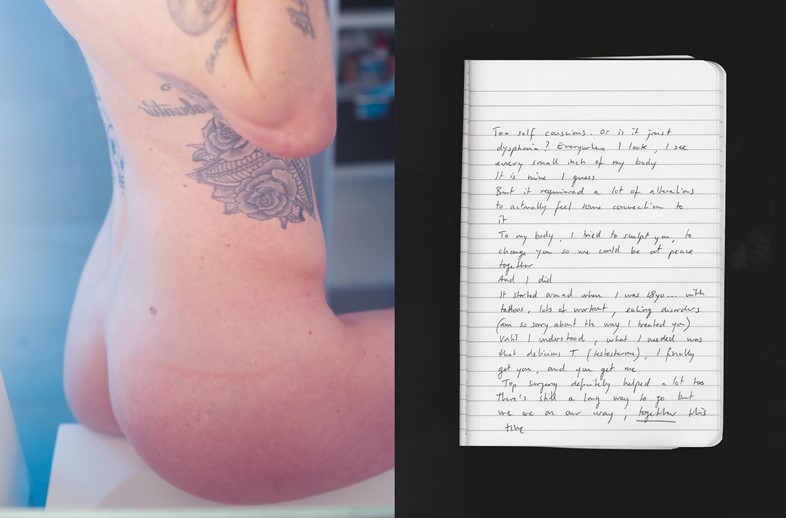 Too self conscious. or is it just
dysphoria? Everywhere I look, I see
every small inch of my body
It is mine I guess
But it requiered a lot of alterations
to actually feel some connection to
it
To my body, I tried to sculpt you, to
change you so we could be at peace
together
And I did
It started around when I was 18yo... with
tattoos, lots of workout, eating disorders
(am so sorry about the way I treated you)
Until I understood, what I needed was
that delicious T (testosterone), I finally
got you, and you get me
Top surgery definitely helped a lot too
there's still a long way to go but
we are on our way, together this
time